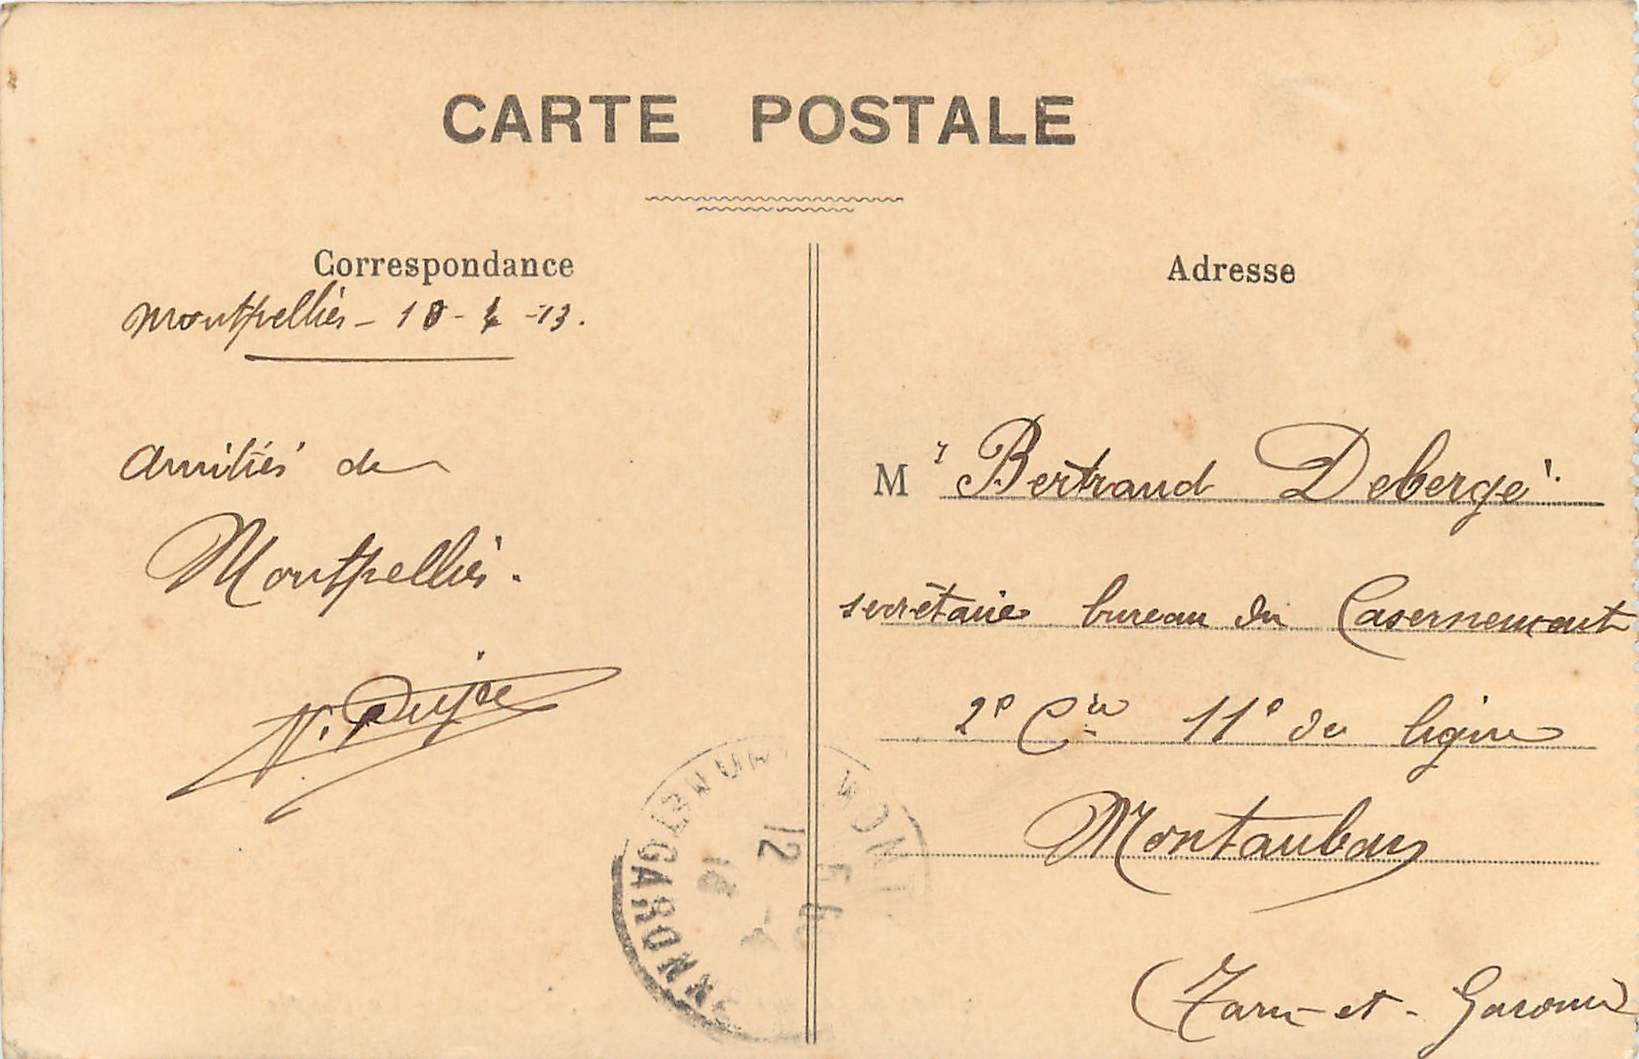 CARTE POSTALE
Correspondance
Montpellier - 18 - 4 - 13.
Amitiés de
Montpellier.
Adresse
Mr Bertrand Debergé.
secrétaire bureau du Casernement
2e Cie 11e de ligne
Montauban
(Tarn-et-Garonne)
MONT
GARONNE
12
18